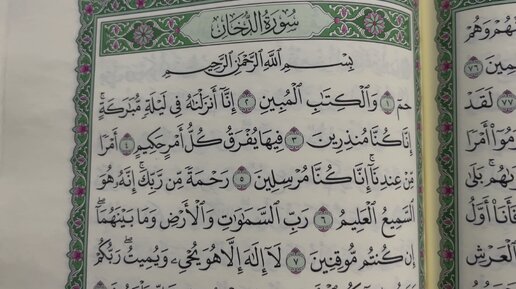 سُورَةُ الدُّخَانِ
بِسْمِ اللَّهِ الرَّحْمَٰنِ الرَّحِيمِ
حمٓ ١ وَالْكِتَابِ الْمُبِينِ ٢ إِنَّا أَنزَلْنَاهُ فِي لَيْلَةٍ مُّبَارَكَةٍ ۚ
إِنَّا كُنَّا مُنذِرِينَ ٣ فِيهَا يُفْرَقُ كُلُّ أَمْرٍ حَكِيمٍ ٤ أَمْرًا
مِّنْ عِندِنَا ۚ إِنَّا كُنَّا مُرْسِلِينَ ٥ رَحْمَةً مِّن رَّبِّكَ ۚ إِنَّهُ هُوَ
السَّمِيعُ الْعَلِيمُ ٦ رَبِّ السَّمَاوَاتِ وَالْأَرْضِ وَمَا بَيْنَهُمَا ۖ
إِن كُنتُم مُّوقِنِينَ ٧ لَا إِلَٰهَ إِلَّا هُوَ يُحْيِي وَيُمِيتُ ۖ رَبُّكُمْ
وَهُمْ
٧٦
٧٧ لَقَدْ
أَمْرًا
بَلَىٰ
فَأَنَا أَوَّلُ
الْعَرْشِ